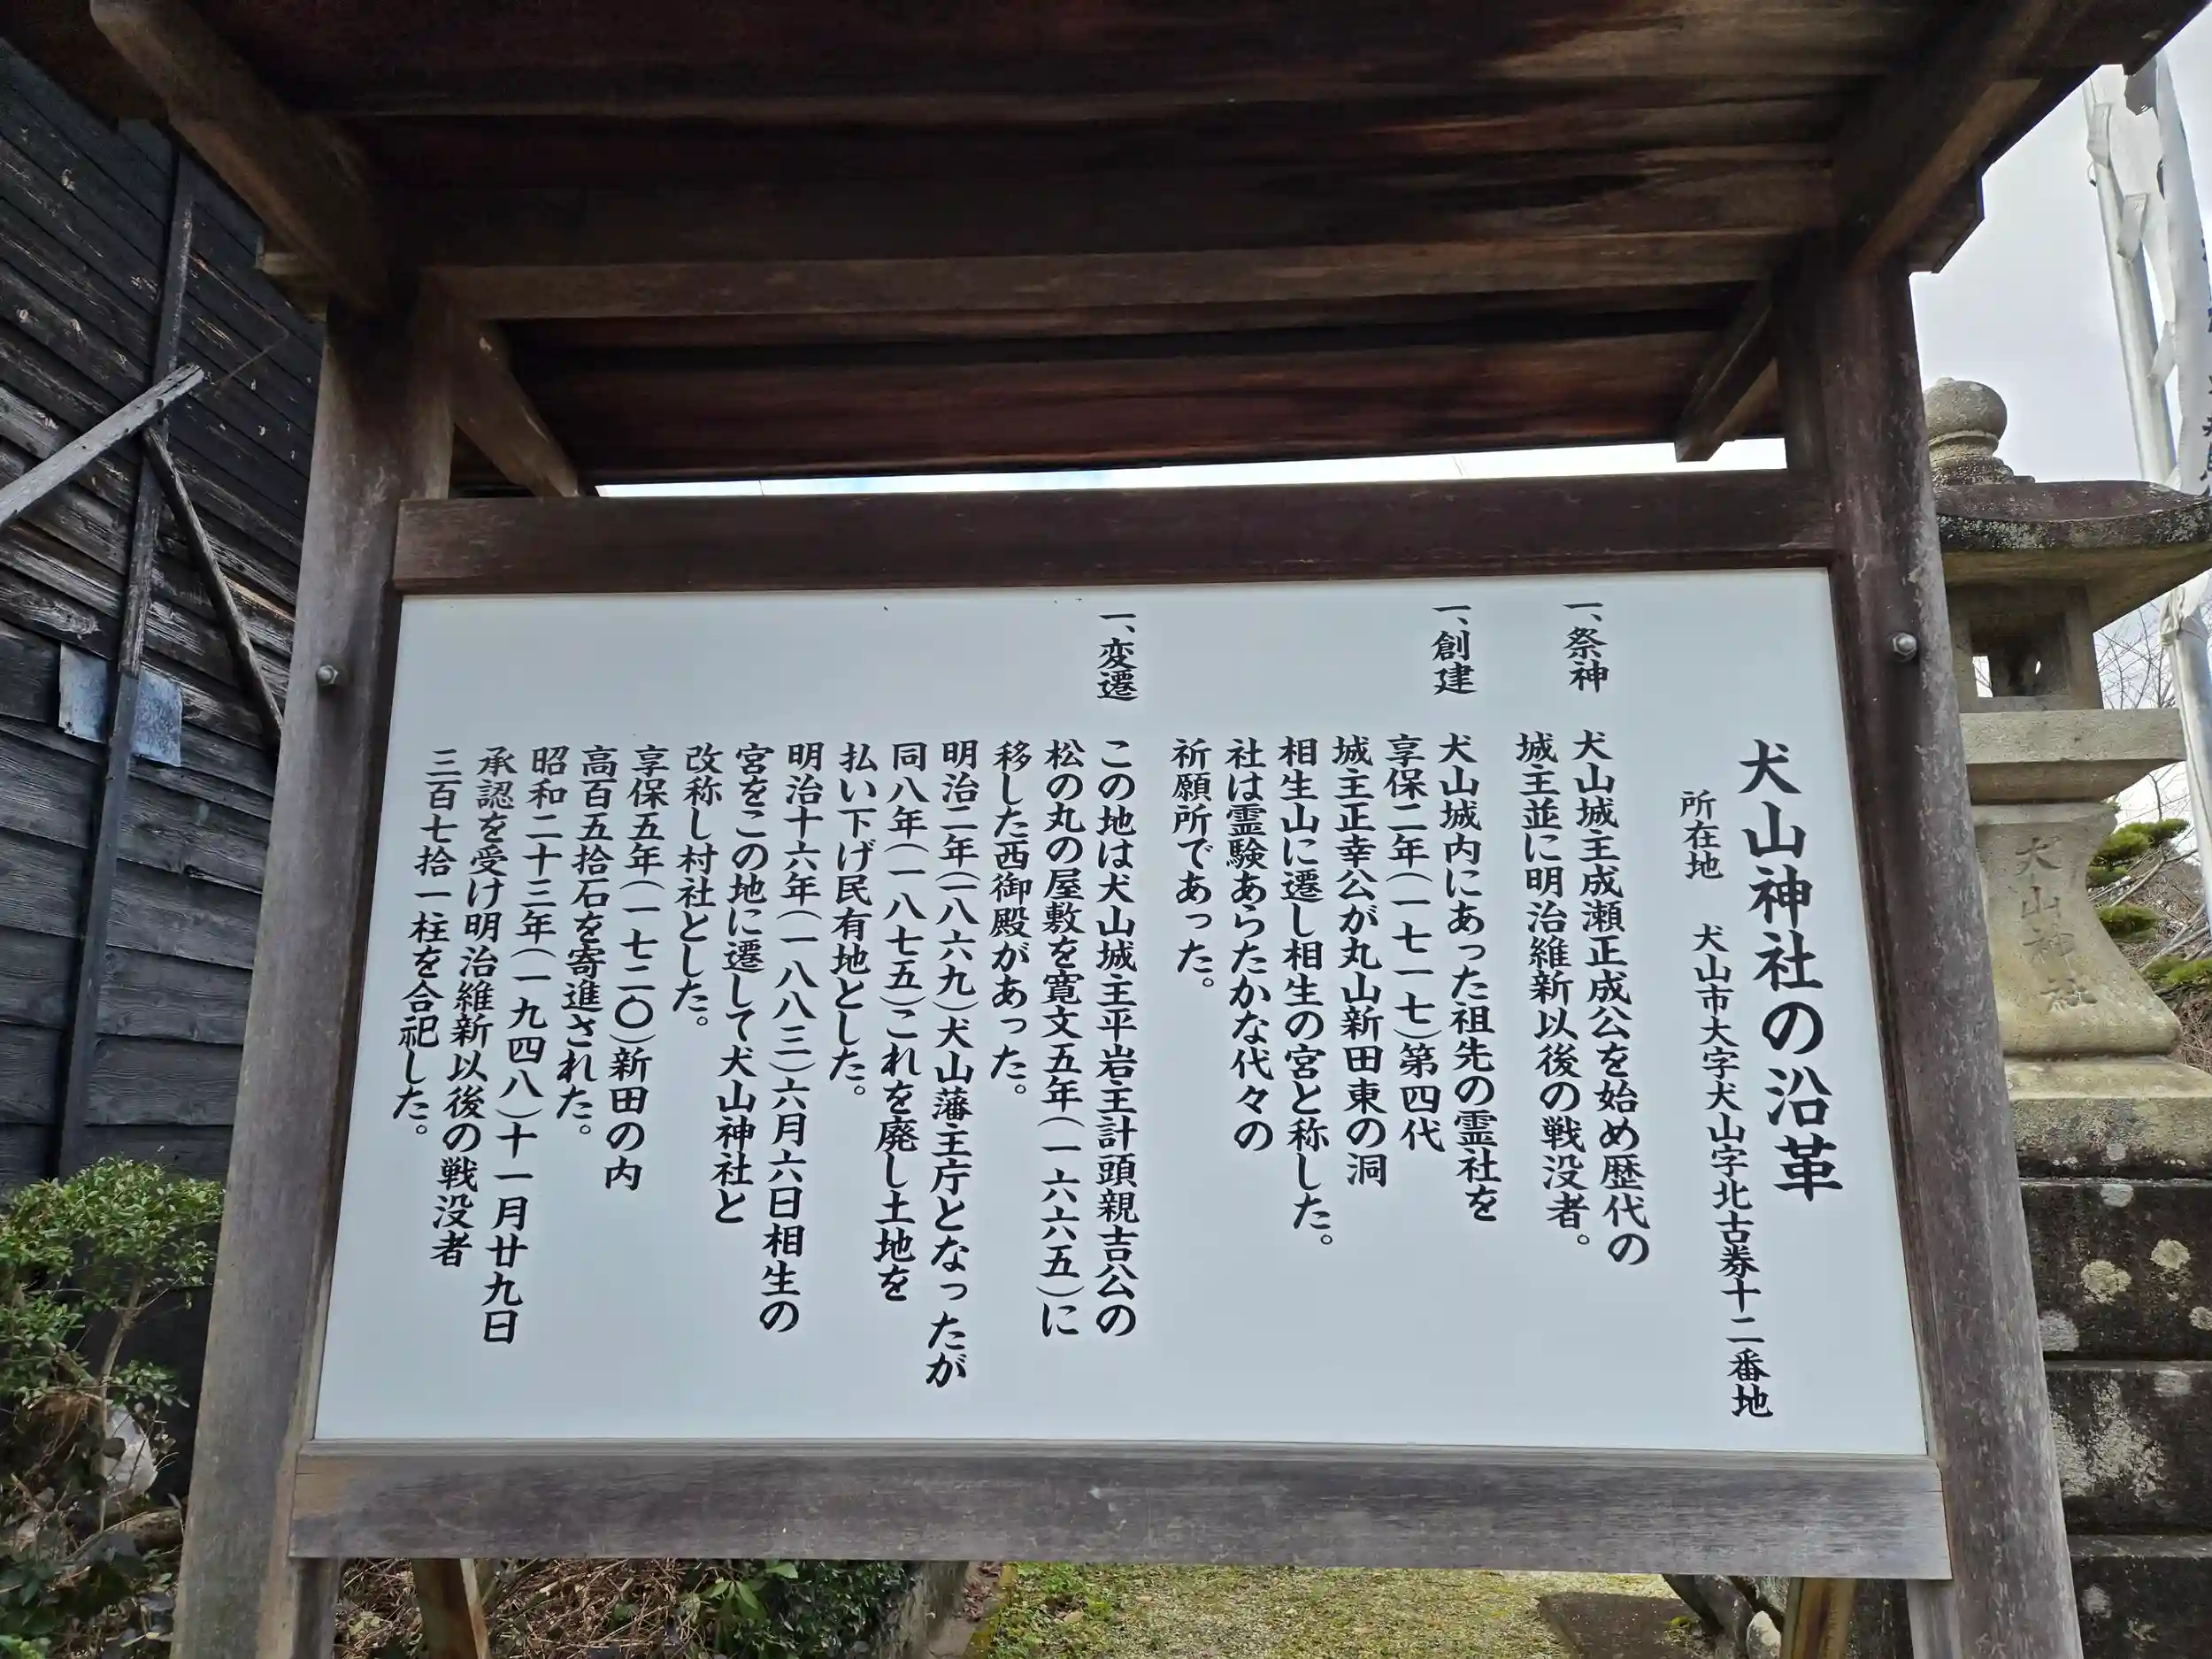 犬山神社の沿革
所在地 犬山市大字犬山字北古券十二番地
一、祭神 犬山城主成瀬正成公を始め歴代の
城主並に明治維新以後の戦没者。
一、創建 犬山城内にあった祖先の霊社を
享保二年(一七一七)第四代
城主正幸公が丸山新田東の洞
相生山に遷し相生の宮と称した。
社は霊験あらたかな代々の
祈願所であった。
一、変遷 この地は犬山城主平岩主計頭親吉公の
松の丸の屋敷を寛文五年(一六六五)に
移した西御殿があった。
明治二年(一八六九)犬山藩主庁となったが
同八年(一八七五)これを廃し土地を
払い下げ民有地とした。
明治十六年(一八八三)六月六日相生の
宮をこの地に遷して犬山神社と
改称し村社とした。
享保五年(一七二〇)新田の内
高百五拾石を寄進された。
昭和二十三年(一九四八)十一月廿九日
承認を受け明治維新以後の戦没者
三百七拾一柱を合祀した。
犬山神社